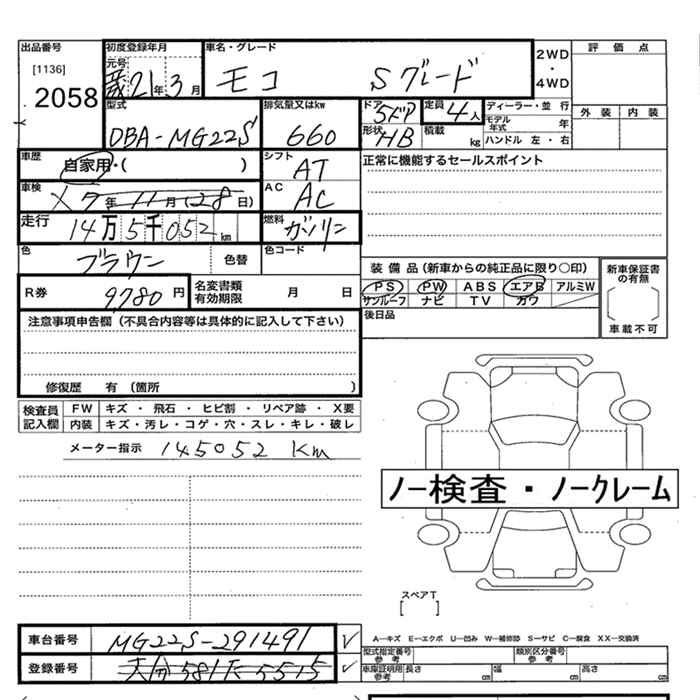 出品番号 初度登録年月 車名・グレード 2WD・4WD 評価点
[1136] 元号 21年3月 モコ Sグレード
2058
型式 排気量又はkw ドア 5ドア 定員 4人 ディーラー・並行 外装 内装
DBA-MG22S 660 形状 HB 積載 kg モデル年式 年
ハンドル 左・右
車歴 自家用・( ) シフト AT 正常に機能するセールスポイント
車検 X 7年11月(28日) AC AC
走行 14万5千052km 燃料 ガソリン
色 ブラウン 色替 色コード
装備品(新車からの純正品に限り○印) 新車保証書の有無
R券 9780円 名変書類有効期限 月 日 PS PW ABS エアB アルミW
サンルーフ ナビ TV カワ
注意事項申告欄(不具合内容等は具体的に記入して下さい) 後日品 車載不可
修復歴 有(箇所 )
検査員記入欄 FW キズ・飛石・ヒビ割・リペア跡・X要
内装 キズ・汚レ・コゲ・穴・スレ・キレ・破レ
メーター指示 145052 Km
ノー検査・ノークレーム
スペアT
[ ]
車台番号 MG22S-291491
A―キズ E―エクボ U―凹み W―補修跡 S―サビ C―腐食 XX―交換済
型式指定番号 参考 類別区分番号 参考
登録番号 大分581 5515
車庫証明用 参考 長さ cm 幅 cm 高さ cm